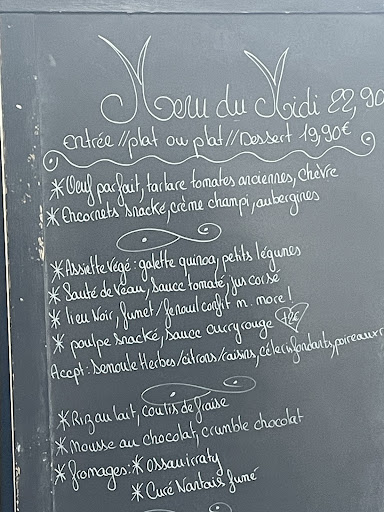 Menu du Midi 22,90
Entrée // plat ou plat // Dessert 19,90€
* Oeuf parfait, tartare tomates anciennes, chèvre
* Encornets snacké, crème champi, aubergines
* Assiette végé : galette quinoa, petits légumes
* Sauté de veau, sauce tomate, jus corsé
* lieu Noir, fumet / fenouil confit m. more !
* poulpe snacké, sauce curry rouge +2€
Accpt : Semoule Herbes/citrons/raisins, céleris fondants, poireaux r
* Riz au lait, coulis de fraise
* Mousse au chocolat, crumble chocolat
* fromages : * Ossau iraty
* Curé Nantais fumé